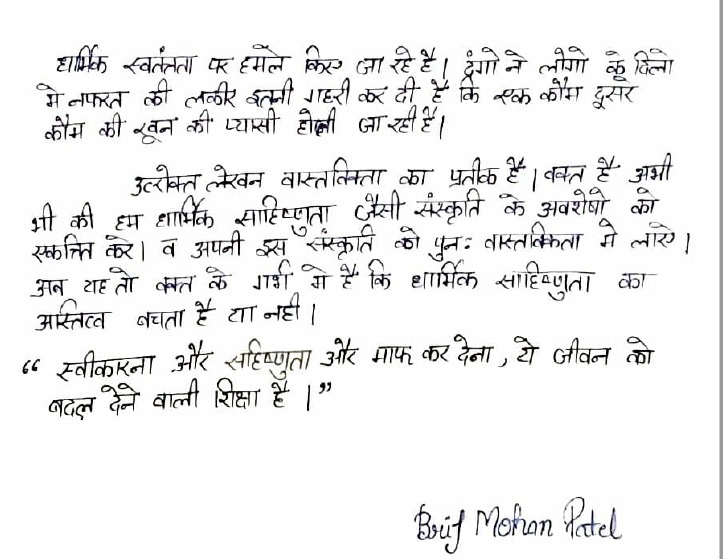 धार्मिक स्वतंत्रता पर हमले किए जा रहे है। दंगो ने लोगो के दिलो
मे नफरत की लकीर इतनी गहरी कर दी है कि एक कौम दूसरे
कौम की खून की प्यासी होती जा रही है।
उपरोक्त लेखन वास्तविकता का प्रतीक है। वक्त है अभी
भी की हम धार्मिक साहिष्णुता जैसी संस्कृति के अवशेषो को
एकत्रित करे। व अपनी इस संस्कृति को पुनः वास्तविकता मे लाए।
अब यह तो वक्त के गर्भ मे है कि धार्मिक साहिष्णुता का
अस्तित्व बचता है या नही।
“ स्वीकारना और सहिष्णुता और माफ कर देना, ये जीवन को
बदल देने वाली शिक्षा है।”
Brij Mohan Patel